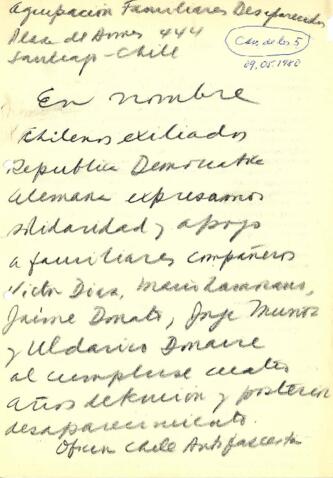 Agrupación Familiares Desaparecidos
Plaza de Armas 444
Santiago-Chile
Caso de los 5
09.05.1980
En nombre
chilenos exiliados
Republica Democratica
Alemana expresamos
solidaridad y apoyo
a familiares compañeros
Victor Diaz, Mario Zamorano,
Jaime Donato, Jorge Muñoz
y Uldarico Donaire
al cumplirse cuatro
años detención y posterior
desaparecimiento.
Oficin Chile Antifascista